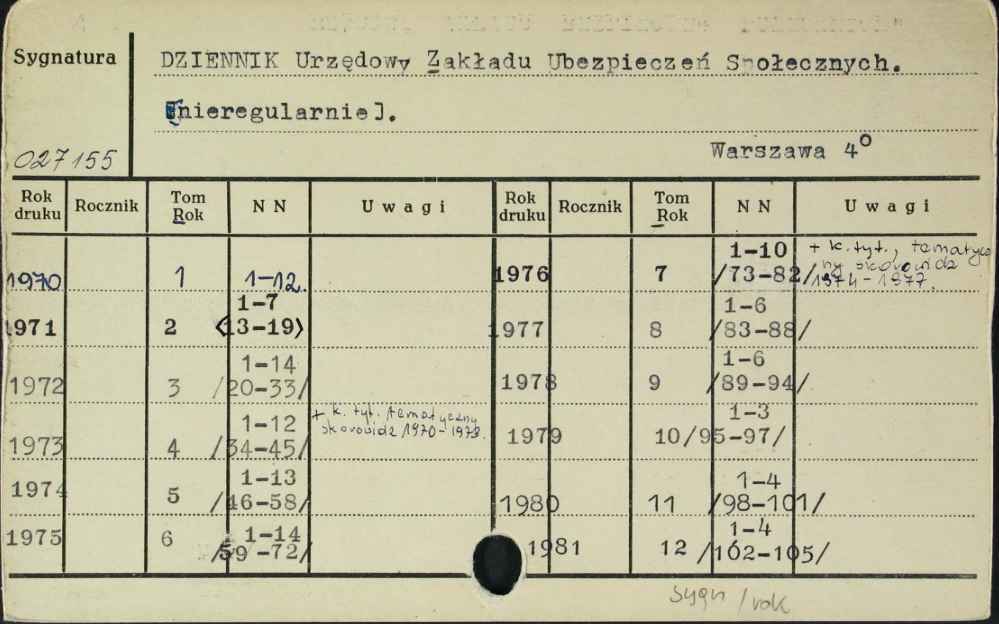 Sygnatura
DZIENNIK Urzędowy Zakładu Ubezpieczeń Społecznych.
[nieregularnie].
027155
Warszawa 4°
Rok druku Rocznik Tom Rok NN Uwagi Rok druku Rocznik Tom Rok NN Uwagi
1970 1 1-12.
1971 2 1-7 <13-19>
1972 3 1-14 /20-33/
1973 4 1-12 /34-45/ + k. tyt. tematyczny skorowidz 1970-1973.
1974 5 1-13 /46-58/
1975 6 1-14 /59-72/
1976 7 1-10 /73-82/ + k. tyt., tematyczny skorowidz 1974-1977.
1977 8 1-6 /83-88/
1978 9 1-6 /89-94/
1979 10 1-3 /95-97/
1980 11 1-4 /98-101/
1981 12 1-4 /102-105/
sygn/rok